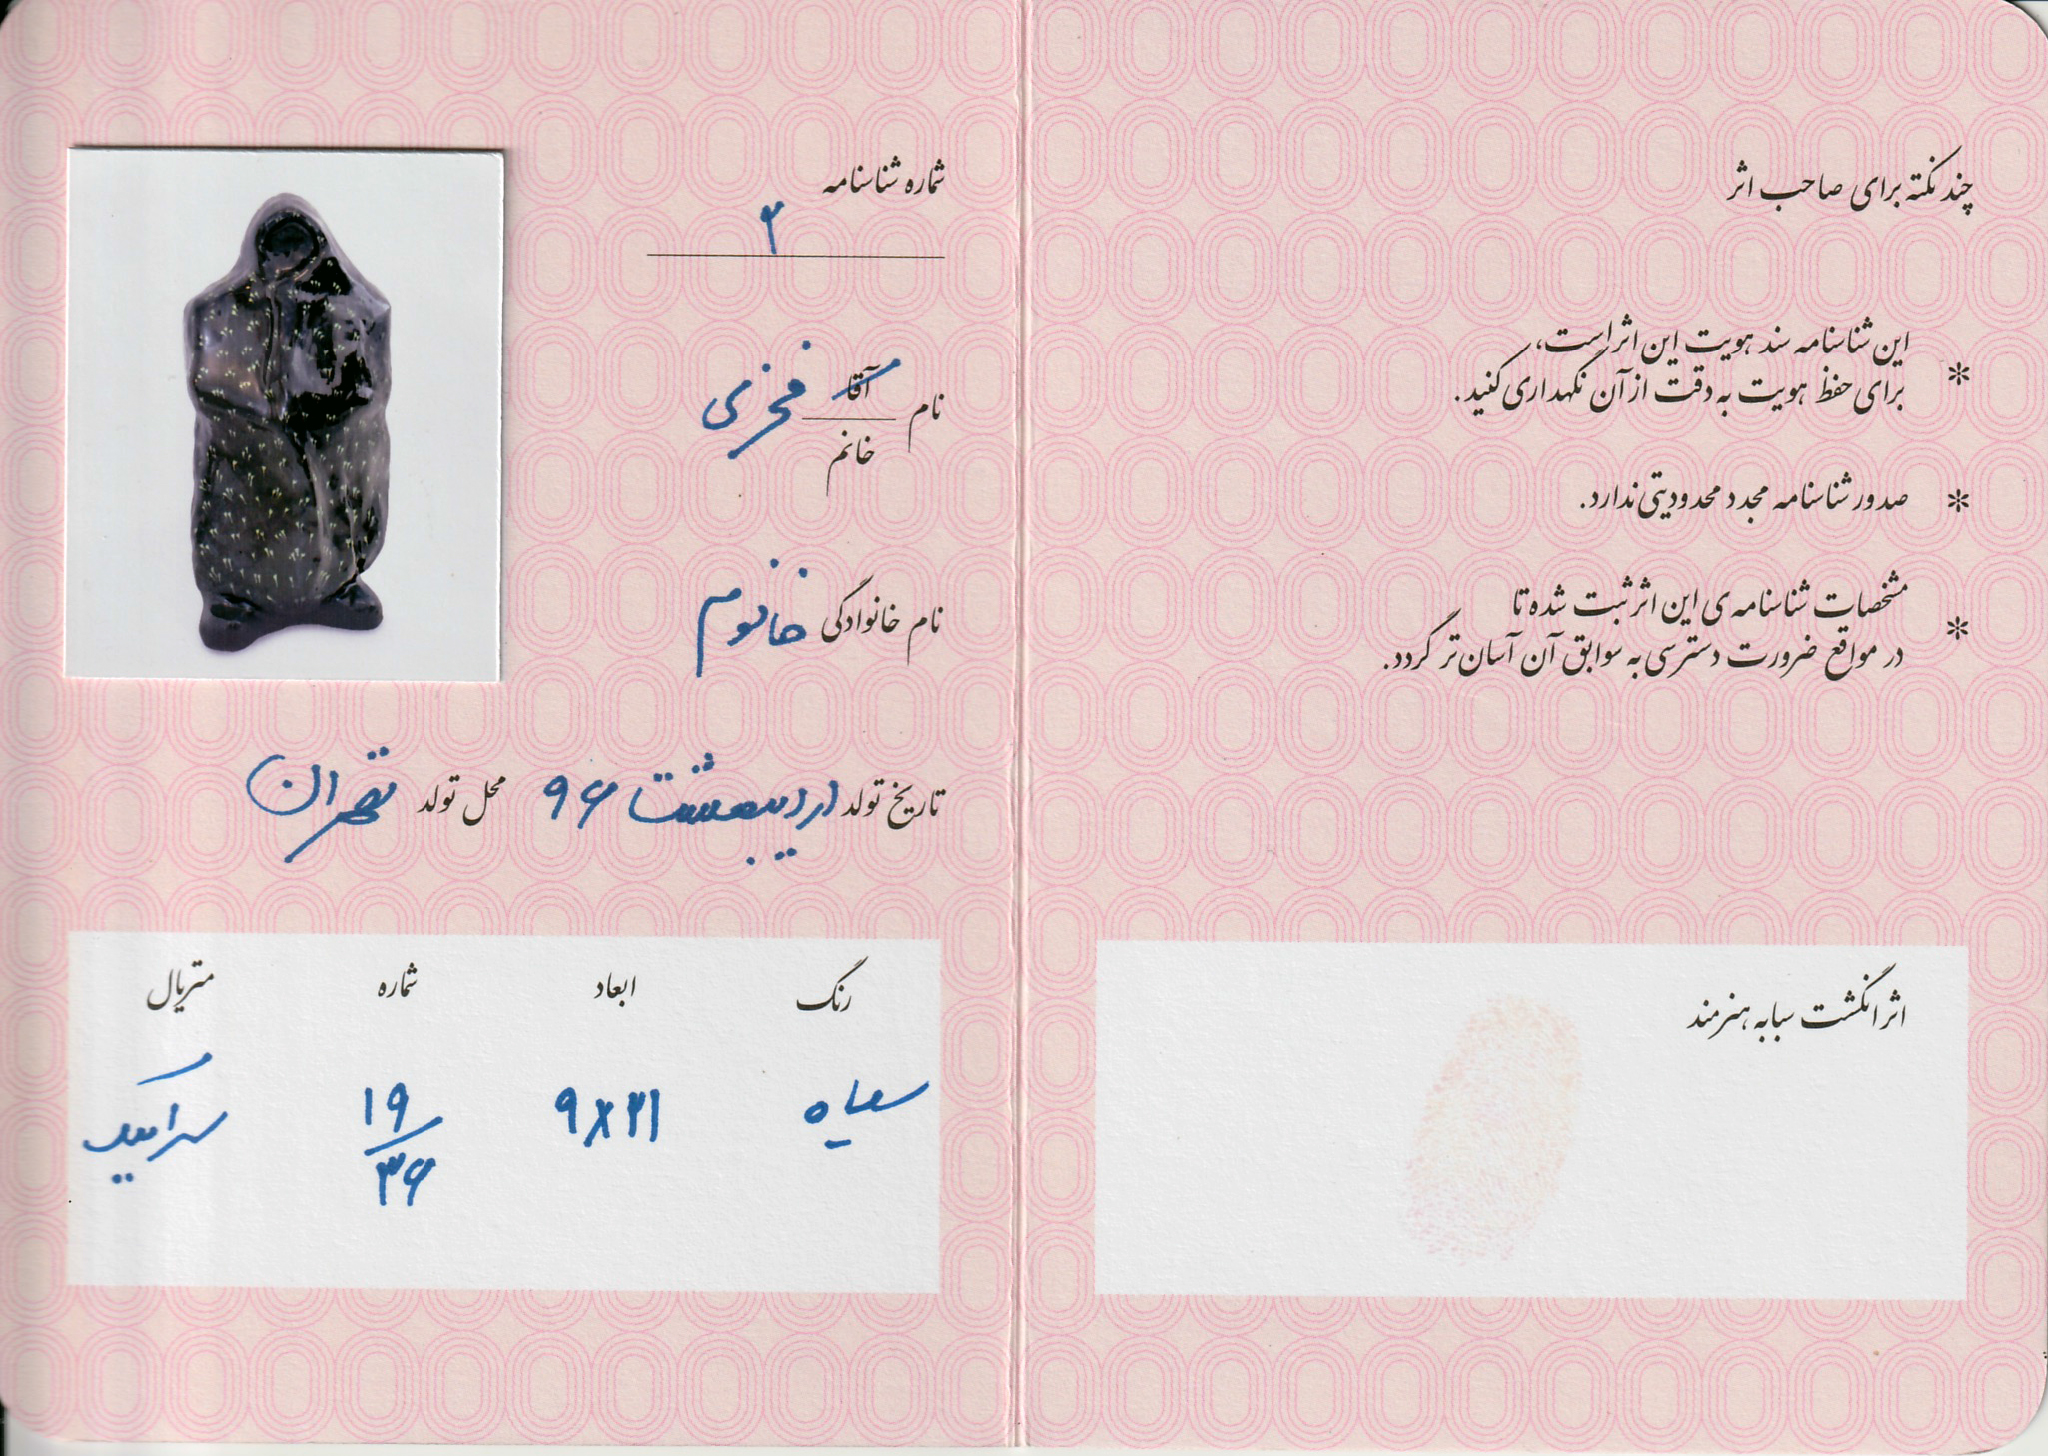 چند نکته برای صاحب اثر
* این شناسنامه سند هویت این اثر است،
برای حفظ هویت به دقت از آن نگهداری کنید.
* صدور شناسنامه مجدد محدودیتی ندارد.
* مشخصات شناسنامه‌ی این اثر ثبت شده تا
در مواقع ضرورت دسترسی به سوابق آن آسان‌تر گردد.
اثر انگشت سبابه هنرمند
شماره شناسنامه
۳
نام آقا فخری
خانم
نام خانوادگی خانوم
تاریخ تولد اردیبهشت ۹۶ محل تولد تهران
رنگ ابعاد شماره متریال
سیاه ۹×۲۱ ۱۹/۳۶ سرامیک